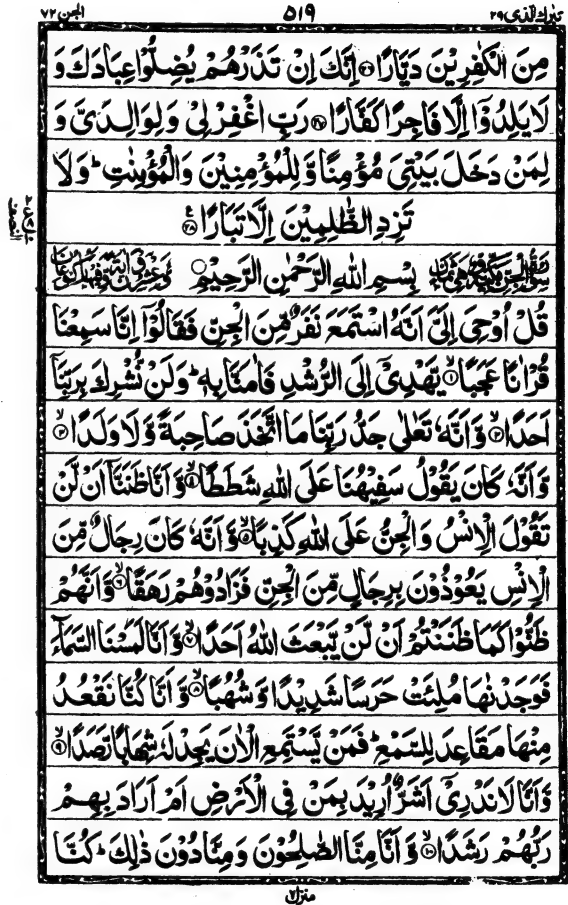 تبٰرك الذی ٢٩ ٥١٩ الجن ٧٢
مِنَ الْكٰفِرِيْنَ دَيَّارًا ﴿٢٦﴾ اِنَّكَ اِنْ تَذَرْهُمْ يُضِلُّوْا عِبَادَكَ وَ
لَا يَلِدُوْۤا اِلَّا فَاجِرًا كَفَّارًا ﴿٢٧﴾ رَبِّ اغْفِرْ لِيْ وَ لِوَالِدَيَّ وَ
لِمَنْ دَخَلَ بَيْتِيَ مُؤْمِنًا وَّ لِلْمُؤْمِنِيْنَ وَ الْمُؤْمِنٰتِ ؕ وَ لَا
تَزِدِ الظّٰلِمِيْنَ اِلَّا تَبَارًا ﴿٢٨﴾ ع
بِسْمِ اللهِ الرَّحْمٰنِ الرَّحِيْمِ
قُلْ اُوْحِيَ اِلَيَّ اَنَّهُ اسْتَمَعَ نَفَرٌ مِّنَ الْجِنِّ فَقَالُوْۤا اِنَّا سَمِعْنَا
قُرْاٰنًا عَجَبًا ﴿١﴾ يَّهْدِيْۤ اِلَى الرُّشْدِ فَاٰمَنَّا بِهٖ ؕ وَ لَنْ نُّشْرِكَ بِرَبِّنَاۤ
اَحَدًا ﴿٢﴾ وَّ اَنَّهٗ تَعٰلٰى جَدُّ رَبِّنَا مَا اتَّخَذَ صَاحِبَةً وَّ لَا وَلَدًا ﴿٣﴾
وَّ اَنَّهٗ كَانَ يَقُوْلُ سَفِيْهُنَا عَلَى اللهِ شَطَطًا ﴿٤﴾ وَّ اَنَّا ظَنَنَّاۤ اَنْ لَّنْ
تَقُوْلَ الْاِنْسُ وَ الْجِنُّ عَلَى اللهِ كَذِبًا ﴿٥﴾ وَّ اَنَّهٗ كَانَ رِجَالٌ مِّنَ
الْاِنْسِ يَعُوْذُوْنَ بِرِجَالٍ مِّنَ الْجِنِّ فَزَادُوْهُمْ رَهَقًا ﴿٦﴾ وَّ اَنَّهُمْ
ظَنُّوْا كَمَا ظَنَنْتُمْ اَنْ لَّنْ يَّبْعَثَ اللهُ اَحَدًا ﴿٧﴾ وَّ اَنَّا لَمَسْنَا السَّمَآءَ
فَوَجَدْنٰهَا مُلِئَتْ حَرَسًا شَدِيْدًا وَّ شُهُبًا ﴿٨﴾ وَّ اَنَّا كُنَّا نَقْعُدُ
مِنْهَا مَقَاعِدَ لِلسَّمْعِ ؕ فَمَنْ يَّسْتَمِعِ الْاٰنَ يَجِدْ لَهٗ شِهَابًا رَّصَدًا ﴿٩﴾
وَّ اَنَّا لَا نَدْرِيْۤ اَشَرٌّ اُرِيْدَ بِمَنْ فِي الْاَرْضِ اَمْ اَرَادَ بِهِمْ
رَبُّهُمْ رَشَدًا ﴿١٠﴾ وَّ اَنَّا مِنَّا الصّٰلِحُوْنَ وَ مِنَّا دُوْنَ ذٰلِكَ ؕ كُنَّا
منزل ٧